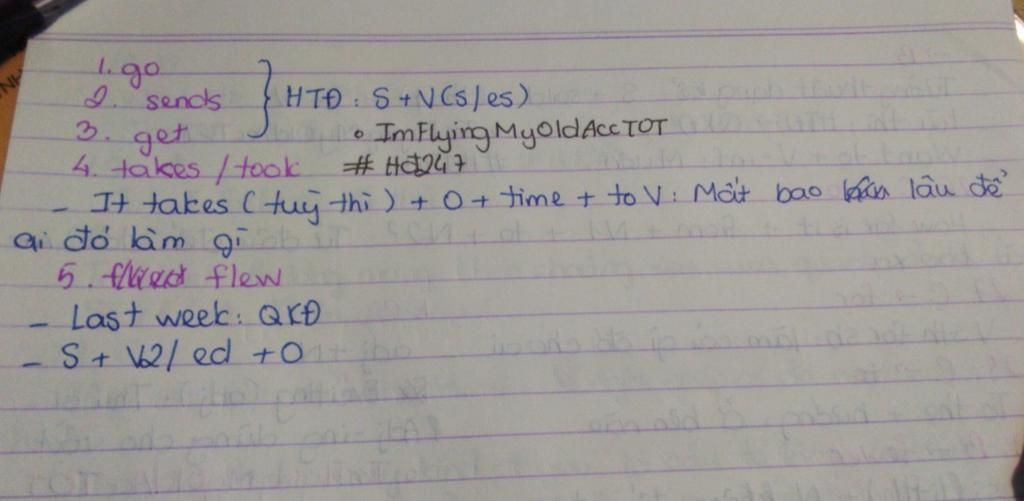 1. go
2. sends } HTĐ: S + V(s/es)
3. get
• ImFlyingMyOldAccTOT
4. takes / took # Hđ247
- It takes (tuỳ thì) + O + time + to V: Mất bao lâu để
ai đó làm gì
5. flew
- Last week: QKĐ
- S + V2/ed + O